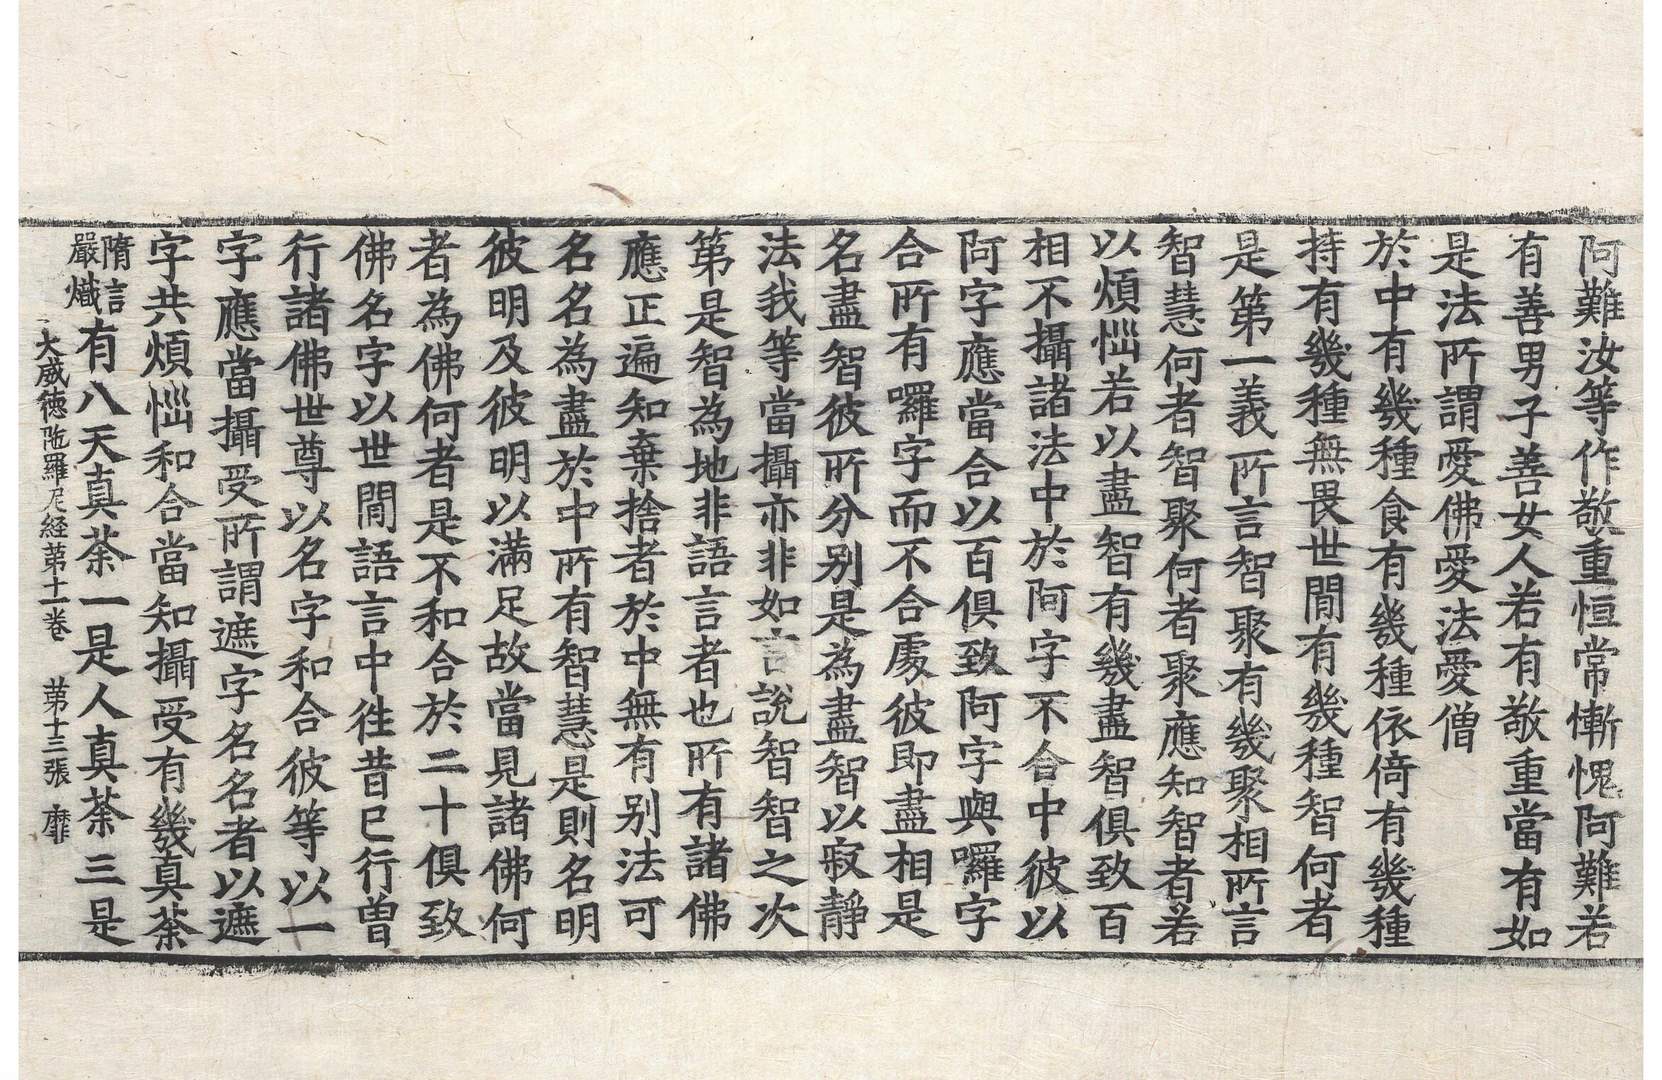 阿難汝等作敬重恒常慚愧阿難若
有善男子善女人若有敬重當有如
是法所謂愛佛愛法愛僧
於中有幾種食有幾種依倚有幾種
持有幾種無畏世間有幾種智何者
是第一義所言智聚有幾聚相所言
智慧何者智聚何者聚應知智者若
以煩惱若以盡智有幾盡智俱致百
相不攝諸法中於阿字不合中彼以
阿字應當合以百俱致阿字與囉字
合所有囉字而不合處彼即盡相是
名盡智彼所分別是為盡智以寂靜
法我等當攝亦非如言說智智之次
第是智為地非語言者也所有諸佛
應正遍知棄捨者於中無有別法可
名名為盡於中所有智慧是則名明
彼明及彼明以滿足故當見諸佛何
者為佛何者是不和合於二十俱致
佛名字以世間語言中徃昔已行曾
行諸佛世尊以名字和合彼等以一
字應當攝受所謂遮字名名者以遮
字共煩惱和合當知攝受有幾真荼
隋言
嚴熾
有八天真荼一是人真荼三是
大威德陁羅尼経苐十一卷 苐十三張 靡